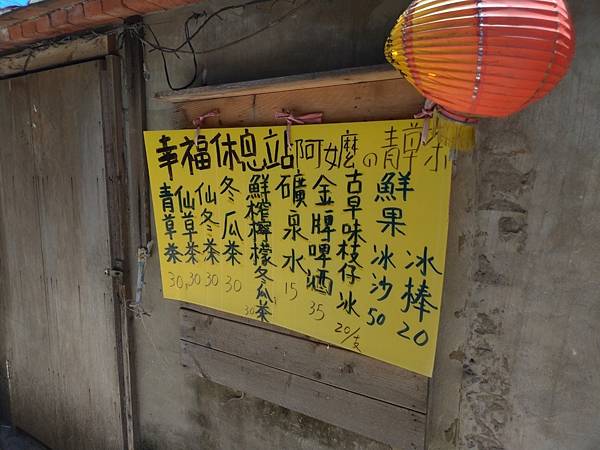 幸福休息站阿嬤の青草茶
青草茶 30
仙草茶 30
仙冬茶 30
冬瓜茶 30
鮮榨檸檬冬瓜茶 30
礦泉水 15
金牌啤酒 35
古早味枝仔冰 20/支
鮮果冰沙 50
冰棒 20